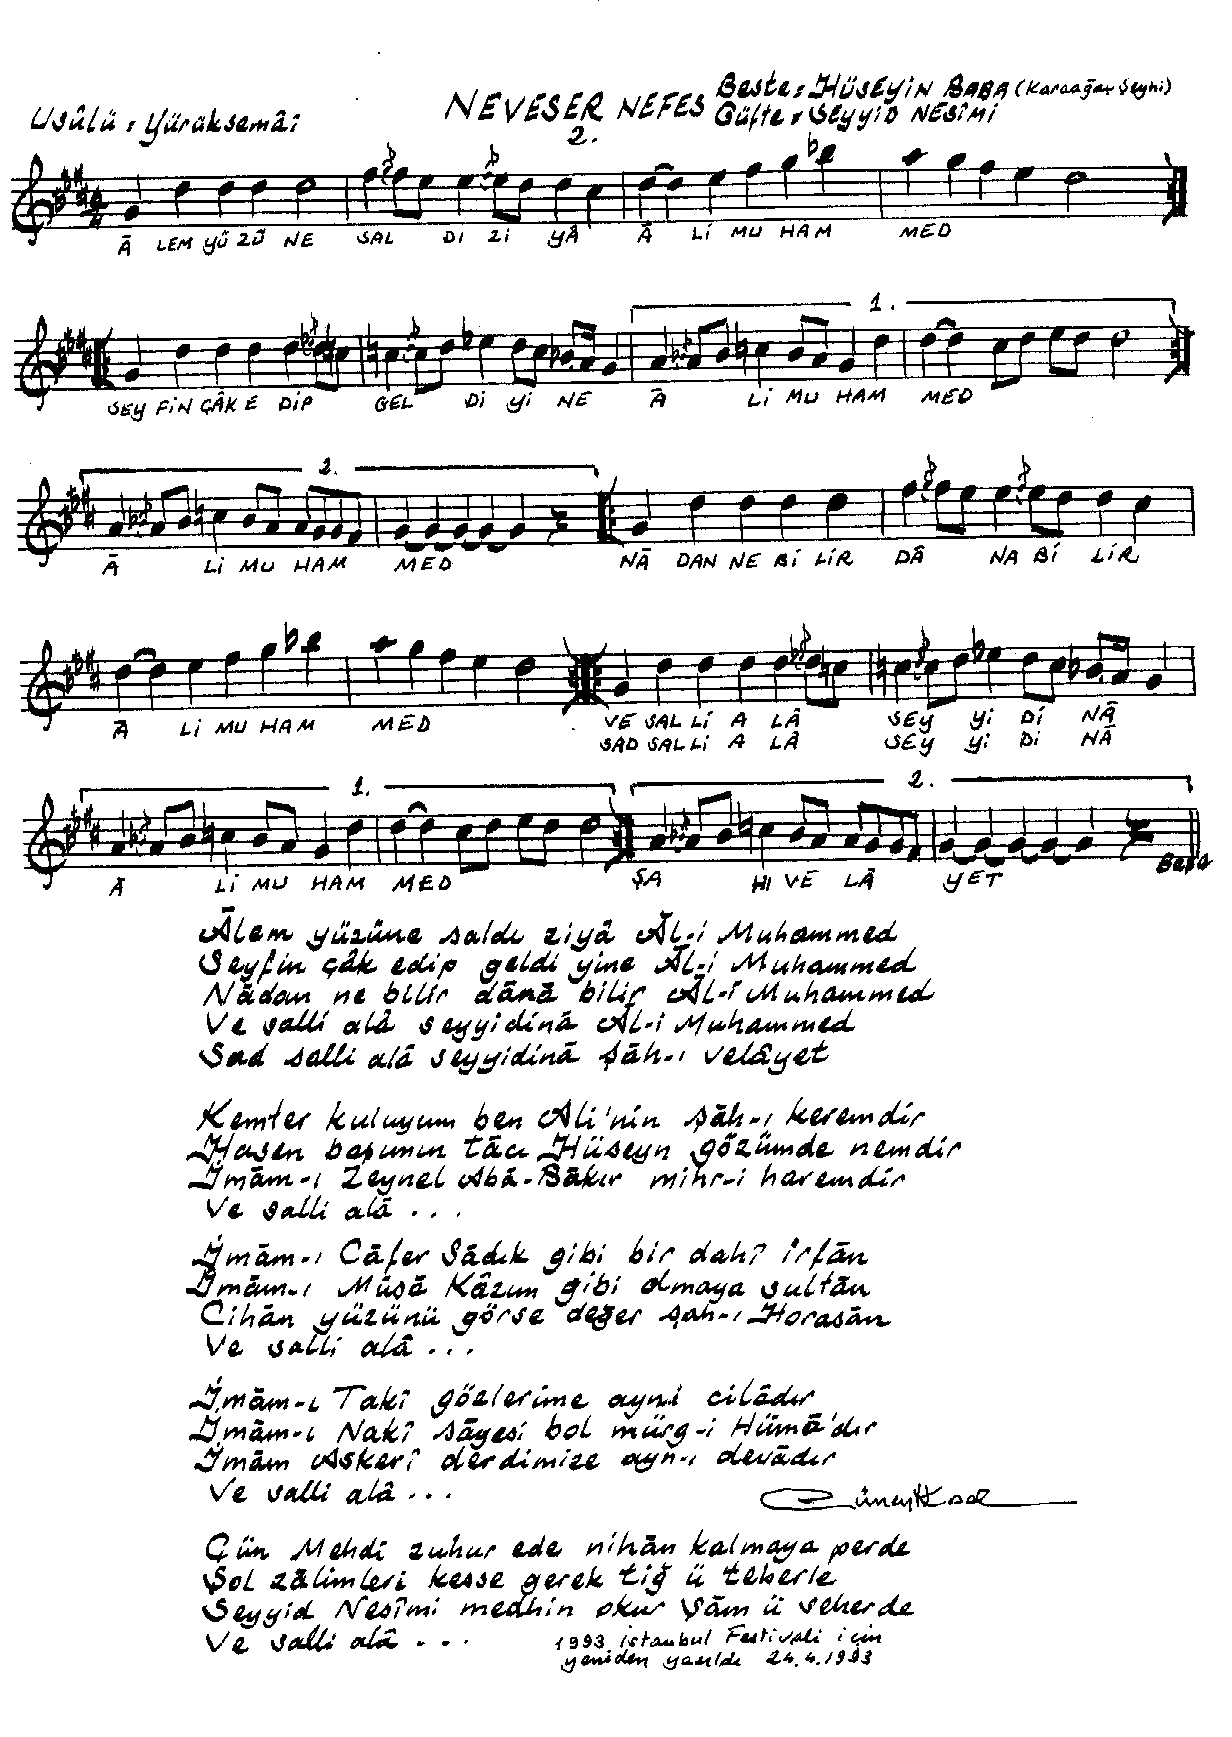 Usûlü : Yürüksemâi
NEVESER NEFES
2.
Beste : HÜSEYİN BABA (Karaağaç Şeyhi)
Güfte : SEYYİD NESÎMİ
Ā LEM YÜ ZÜ NE SAL DI ZI YÂ Â Lİ MU HAM MED
1.
SEY FİN ÇÂK E DİP GEL Dİ Yİ NE Ā Lİ MU HAM MED
2.
Ā Lİ MU HAM MED NĀ DAN NE Bİ LİR DÂ NA Bİ LİR
Ā Lİ MU HAM MED VE SAL Lİ A LÂ SEY Yİ Dİ NĀ
SAD SAL Lİ A LÂ SEY Yİ Dİ NĀ
1. 2.
Ā Lİ MU HAM MED ŞA HI VE LÂ YET Başa
Âlem yüzüne saldı ziyâ Âl-i Muhammed
Seyfin çâk edip geldi yine Âl-i Muhammed
Nādan ne bilir dānā bilir Âl-i Muhammed
Ve salli alâ seyyidinā Âl-i Muhammed
Sad salli alâ seyyidinā şāh-ı velâyet
Kemter kuluyum ben Ali'nin şāh-ı keremdir
Hasen başımın tācı Hüseyn gözümde nemdir
İmām-ı Zeynel Abā-Bākır mihr-i haremdir
Ve salli alâ . . .
İmām-ı Cāfer Sādık gibi bir dahî irfān
İmām-ı Mûsā Kâzım gibi olmaya sultān
Cihān yüzünü görse değer şah-ı Horasān
Ve salli alâ . . .
İmām-ı Takî gözlerime ayni cilâdır
İmām-ı Nakî sāyesi bol mürg-i Hümā'dır
İmām Askerî derdimize ayn-ı devādır
Ve salli alâ . . .
Çün Mehdi zuhur ede nihān kalmaya perde
Şol zālimleri kesse gerek tiğ ü teberle
Seyyid Nesîmi medhin okur Şām ü seherde
Ve salli alâ . . .
1993 İstanbul Festivali için
yeniden yazıldı 24.4.1993